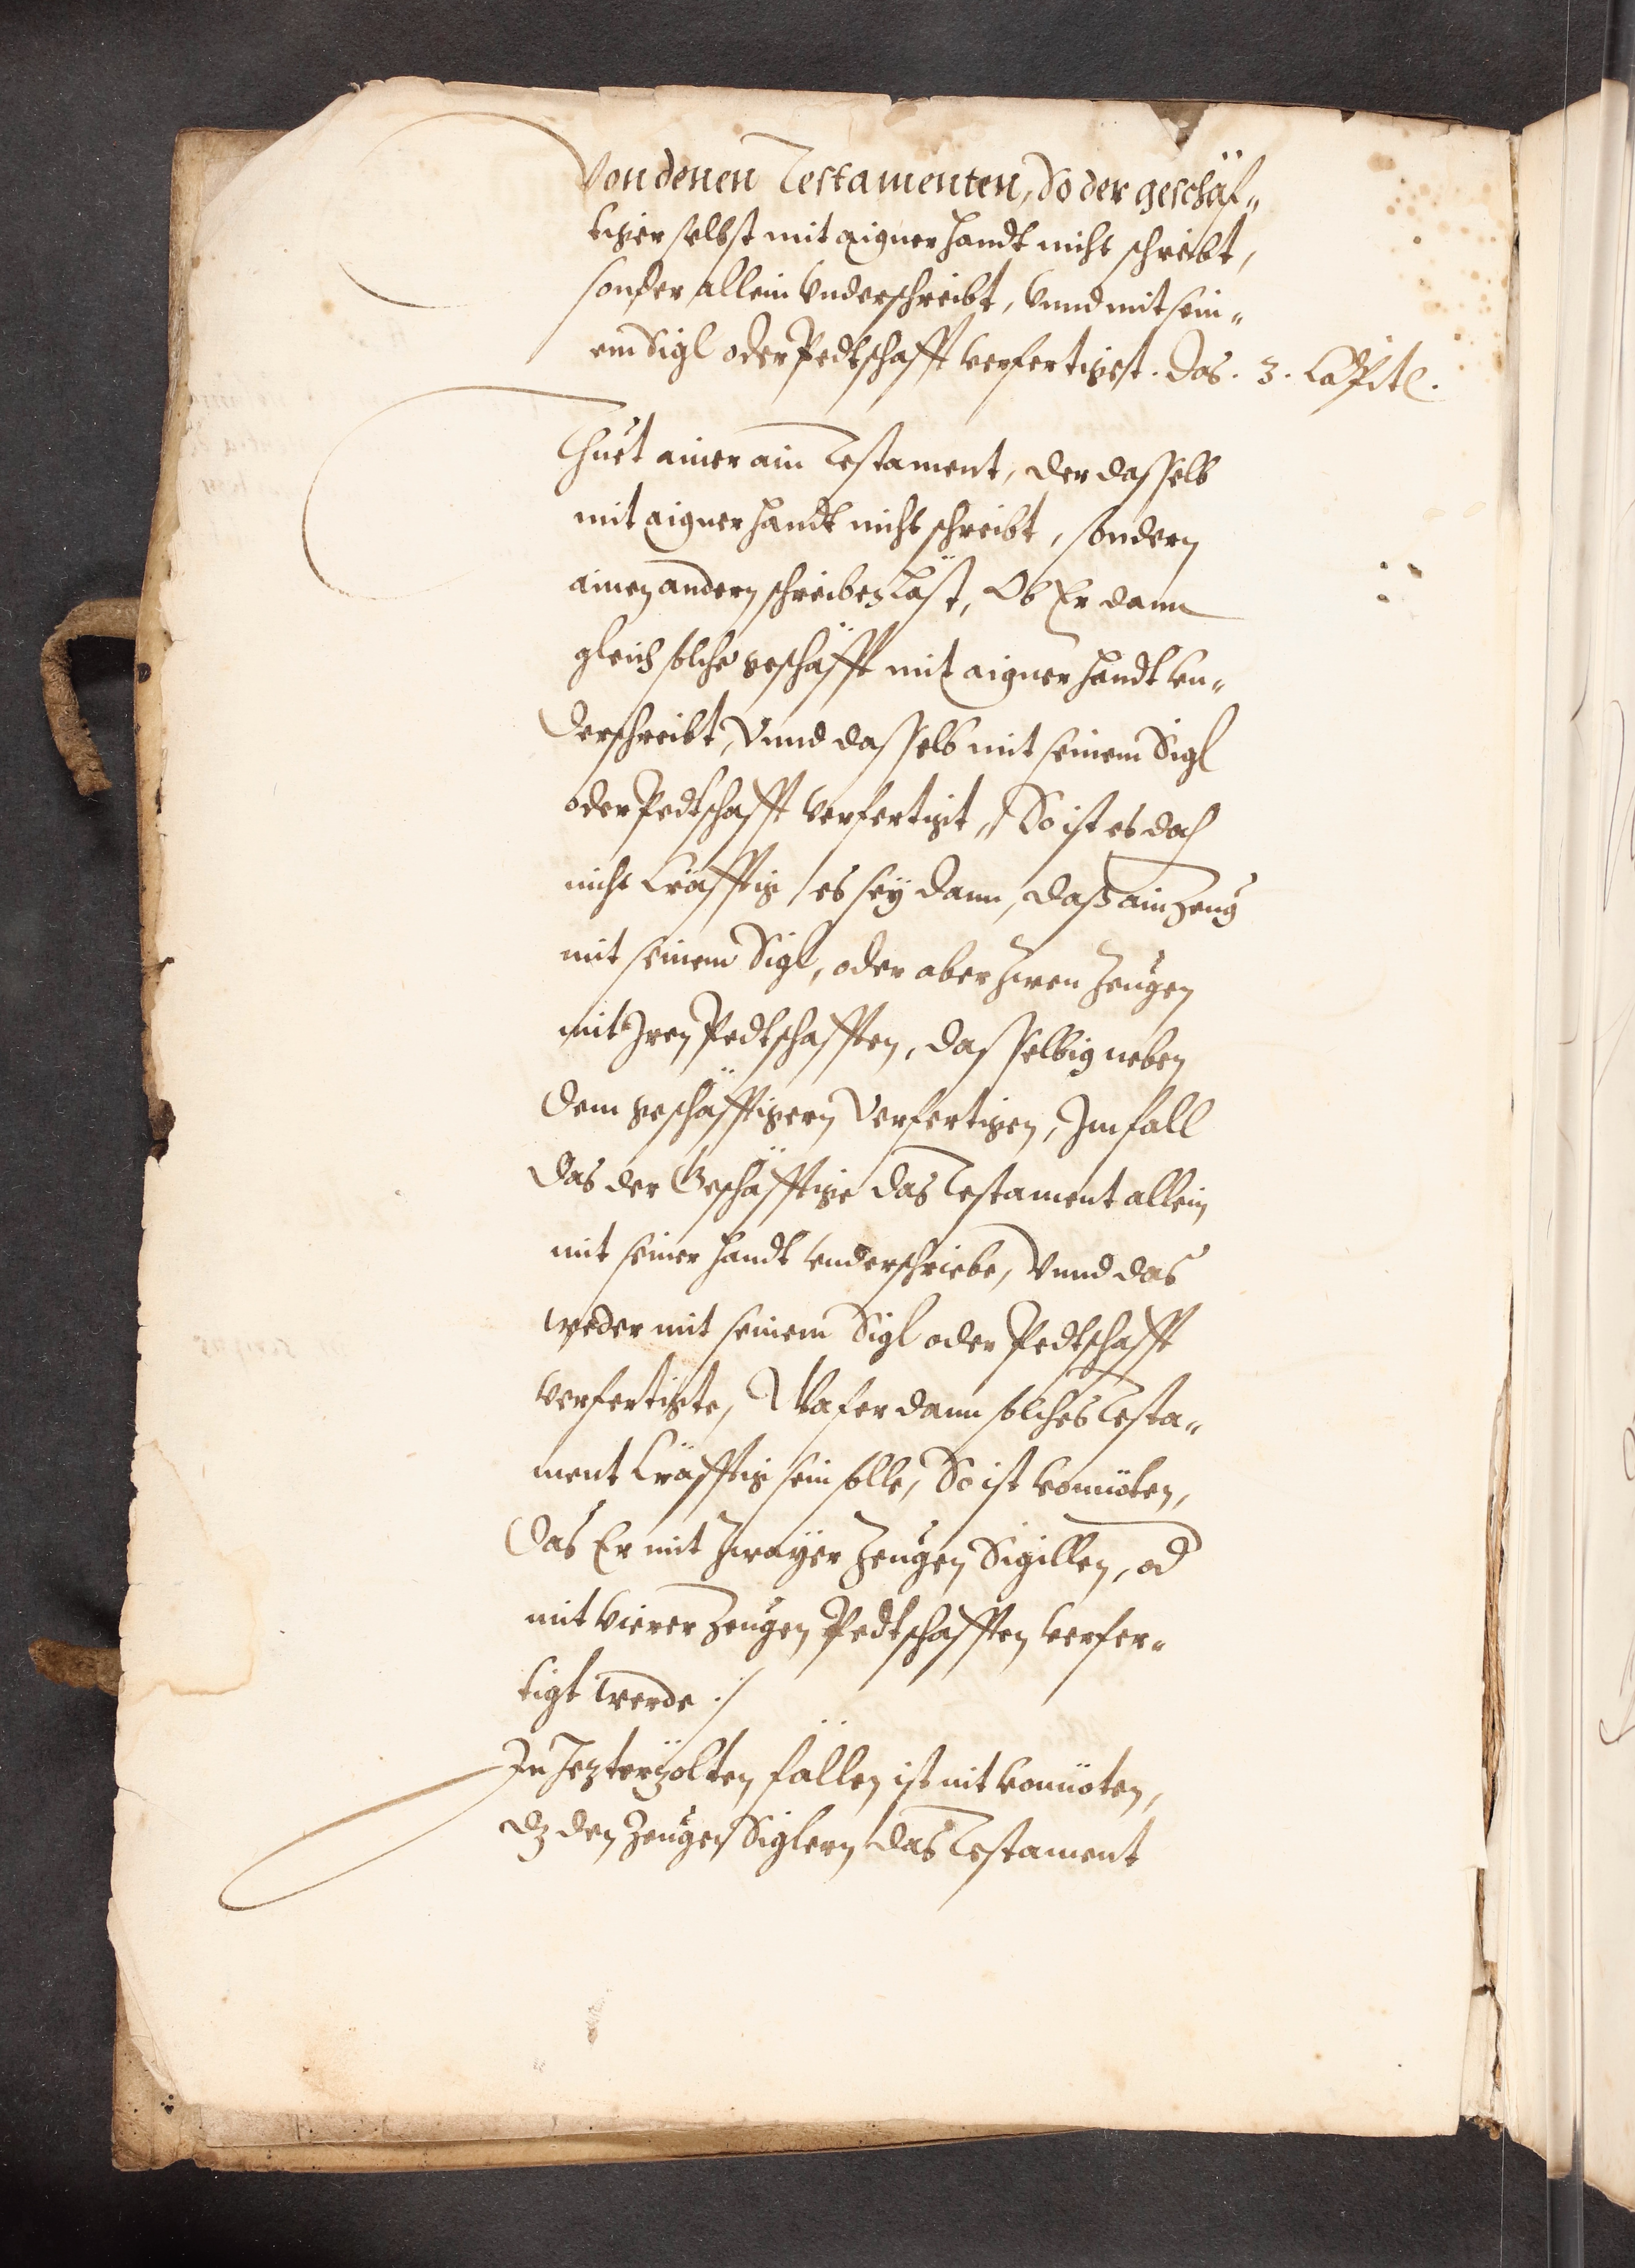 Von denen Testamenten, So der geschäf„
tiger selbst mit aigner handt nicht schreibt,
sonder allein Vnderschreibt, Vnnd mit sein„
em Sigl oder Pedtschafft verfertiget. Das. 3. Capitl.
Thuet ainer ain Testament, der dasselb
mit aigner handt nicht schreibt, sondern
ainen andern schreiben läst, Ob Er dann
gleich solche geschäfft mit aigner handt vn„
derschreibt, Vnnd dasselb mit seinem Sigl
oder Pedtschafft verfertigt, So ist es doch
nicht Cräfftig, es sey dann, daß ain Zeug
mit seinem Sigl, oder aber zwen Zeugen
mit Jren Pedtschafften, dasselbig neben
dem geschäfftigern Verfertigen, Jm fall
das der Geschäfftige das Testament allein
mit seiner handt vnderschriebe, Vnnd das
weder mit seinem Sigl oder Pedtschafft
verfertigte, Wafer dann solches Testa„
ment Cräfftig sein solle, So ist vonnöten,
das Er mit zwayer Zeugen Sigillen, od
mit vierer Zeugen Pedtschafften verfer„
tigt werde ./
Jn Jezterzölten fällen ist nit vonnöten,
dz den Zeugen Siglern das Testament